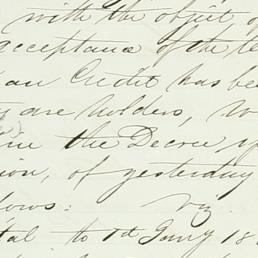 with the object of
acceptance of the te
an Credit has be
y are holders, wo
me the Decree, of
ion, of yesterday
lows: viz
tal to 1st Jany 18